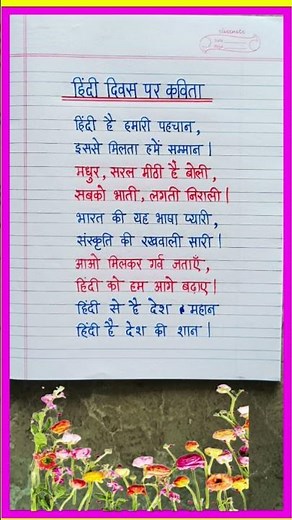 classmate
Date
Page
हिंदी दिवस पर कविता
हिंदी है हमारी पहचान,
इससे मिलता हमें सम्मान।
मधुर, सरल मीठी है बोली,
सबको भाती, लगती निराली।
भारत की यह भाषा प्यारी,
संस्कृति की रखवाली सारी।
आओ मिलकर गर्व जताएँ,
हिंदी को हम आगे बढ़ाए।
हिंदी से है देश महान
हिंदी है देश की शान।